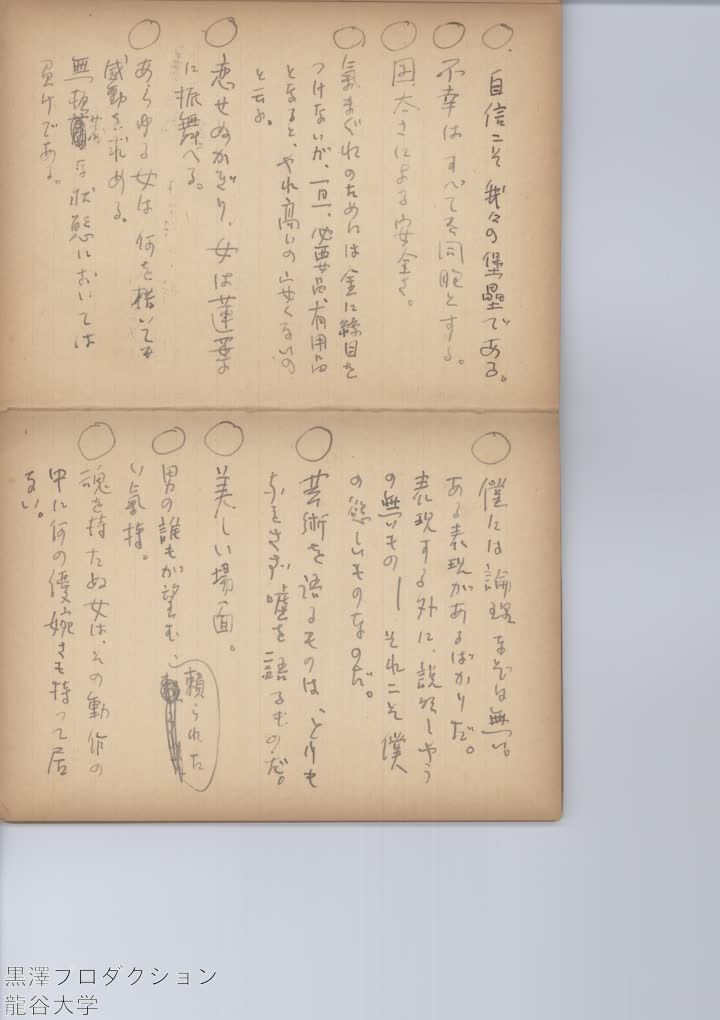 自信こそ我々の堡塁である。
不幸はすべてを同胞とする。
図太さによる安全さ。
氣まぐれのためには金に糸目を
つけないが、一旦、必要品、有用品
となると、やれ高いの安くないの
と云ふ。
恋せぬかぎり、女は蓮葉
に振舞へる。
あらゆる女は何を措いても
感動を求める。
な状態においては
である。
僕には論理なぞは無い。
ある表現があるばかりだ。
表現する外に、説明しやう
の無いもの──それこそ僕
の欲しいものなのだ。
芸術を語るものは、とりも
なほさず嘘を語るものだ。
美しい場面。
男の誰もが望む、頼られた
い氣持。
魂を持たぬ女は、その動作の
中に何の優婉さも持って居
ない。
黒澤プロダクション
龍谷大学